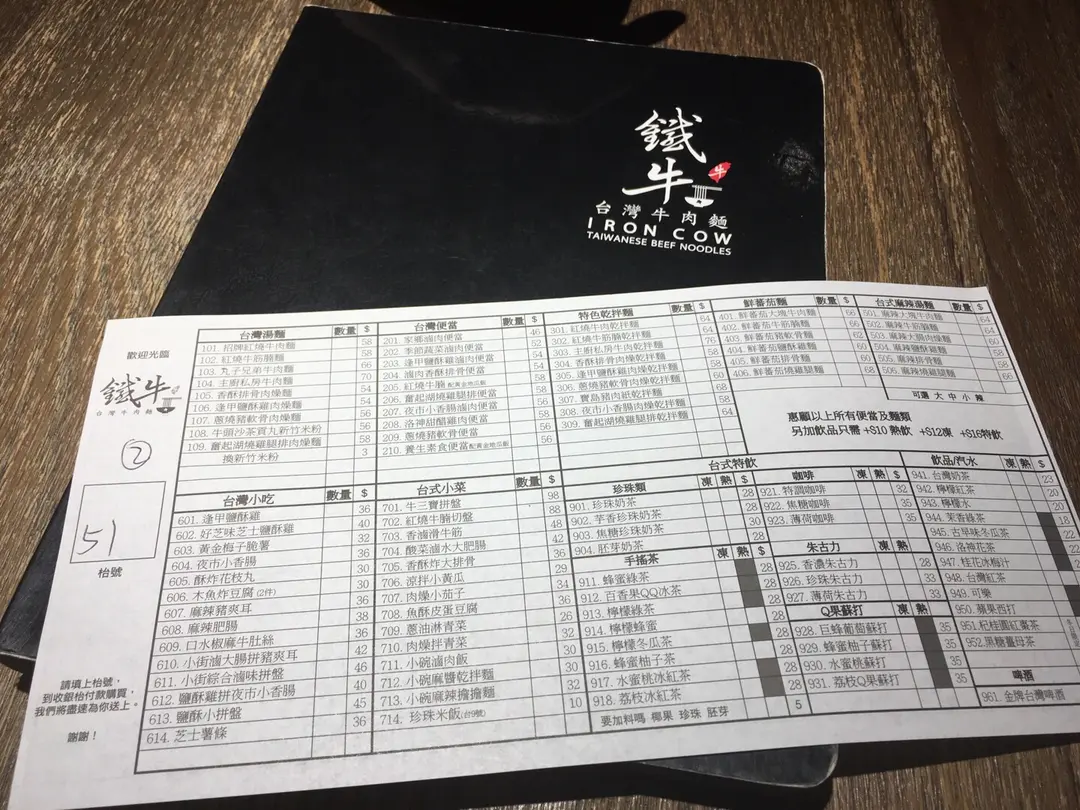 鐵
牛
牛
台灣牛肉麵
IRON COW
TAIWANESE BEEF NOODLES
歡迎光臨
鐵牛
台灣牛肉麵
2
51
枱號
請填上枱號,
到收銀枱付款購買,
我們將盡速為你送上。
謝謝!
台灣湯麵 數量 $
101. 招牌紅燒牛肉麵 58
102. 紅燒牛筋腩麵 58
103. 丸子兄弟牛肉麵 66
104. 主廚私房牛肉麵 70
105. 香酥排骨肉燥麵 54
106. 逢甲鹽酥雞肉燥麵 54
107. 蔥燒豬軟骨肉燥麵 56
108. 牛頭沙茶貢丸新竹米粉 56
109. 奮起湖燒雞腿排肉燥麵 58
換新竹米粉 3
台灣便當 數量 $
201. 家鄉滷肉便當 46
202. 季節蔬菜滷肉便當 52
203. 逢甲鹽酥雞滷肉便當 54
204. 滷肉香酥排骨便當 54
205. 紅燒牛腩 配黃金地瓜飯 58
206. 奮起湖燒雞腿排便當 58
207. 夜市小香腸滷肉便當 56
208. 洛神甜醋雞肉便當 56
209. 蔥燒豬軟骨便當 56
210. 養生素食便當 配黃金地瓜飯 56
特色乾拌麵 數量 $
301. 紅燒牛肉乾拌麵 64
302. 紅燒牛筋腩乾拌麵 64
303. 主廚私房牛肉乾拌麵 76
304. 香酥排骨肉燥乾拌麵
305. 逢甲鹽酥雞肉燥乾拌麵
306. 蔥燒豬軟骨肉燥乾拌麵
307. 寶島豬肉紙乾拌麵
308. 夜市小香腸肉燥乾拌麵 58
309. 奮起湖燒雞腿排乾拌麵 64
鮮蕃茄麵 數量 $
401. 鮮蕃茄大塊牛肉麵 66
402. 鮮蕃茄牛筋腩麵 66
403. 鮮蕃茄豬軟骨麵 62
404. 鮮蕃茄鹽酥雞麵 60
405. 鮮蕃茄排骨麵 60
406. 鮮蕃茄燒雞腿麵 68
台式麻辣湯麵 數量 $
501. 麻辣大塊牛肉麵 64
502. 麻辣牛筋腩麵 64
503. 麻辣大腸肉麵 60
504. 麻辣鹽酥雞麵
505. 麻辣排骨麵
506. 麻辣燒雞腿麵 66
可選 大 中 小 辣
惠顧以上所有便當及麵類
另加飲品只需 +$10 熱飲 +$12凍 +$16特飲
台灣小吃 數量 $
601. 逢甲鹽酥雞 36
602. 好芝味芝士鹽酥雞 40
603. 黃金梅子脆薯 32
604. 夜市小香腸 36
605. 酥炸花枝丸 30
606. 木魚炸豆腐 (2件) 30
607. 麻辣豬爽耳 36
608. 麻辣肥腸 38
609. 口水椒麻牛肚絲 42
610. 小街滷大腸拼豬爽耳 46
611. 小街綜合滷味拼盤 46
612. 鹽酥雞拼夜市小香腸 40
613. 鹽酥小拼盤 45
614. 芝士薯條 36
台式小菜 數量 $
701. 牛三寶拼盤 98
702. 紅燒牛腩切盤 88
703. 香滷滑牛筋 48
704. 酸菜滷水大肥腸 42
705. 香酥炸大排骨 36
706. 涼拌小黃瓜 29
707. 肉燥小茄子 34
708. 魚酥皮蛋豆腐 28
709. 蔥油淋青菜 26
710. 肉燥拌青菜 32
711. 小碗滷肉飯
712. 小碗麻醬乾拌麵 30
713. 小碗麻辣擔擔麵 32
714. 珍珠米飯(台9號) 10
台式特飲
珍珠類 凍 熱 $
901. 珍珠奶茶 28
902. 芋香珍珠奶茶 28
903. 焦糖珍珠奶茶 30
904. 胚芽奶茶 28
手搖茶 凍 熱 $
911. 蜂蜜綠茶 28
912. 百香果QQ冰茶
913. 檸檬綠茶 28
914. 檸檬蜂蜜 28
915. 檸檬冬瓜茶 28
916. 蜂蜜柚子茶 28
917. 水蜜桃冰紅茶
918. 荔枝冰紅茶 28
要加料嗎 椰果 珍珠 胚芽 5
咖啡 凍 熱 $
921. 特調咖啡 32
922. 焦糖咖啡 35
923. 薄荷咖啡 35
朱古力 凍 熱
925. 香濃朱古力 28
926. 珍珠朱古力 33
927. 薄荷朱古力 33
Q果蘇打 凍 熱
928. 巨蜂葡萄蘇打 35
929. 蜂蜜柚子蘇打 35
930. 水蜜桃蘇打 35
931. 荔枝Q果蘇打 35
飲品/汽水 凍 熱 $
941. 台灣奶茶 23
942. 檸檬紅茶 20
943. 檸檬水 20
944. 茉香綠茶 18
945. 古早味冬瓜茶
946. 洛神花茶 22
947. 桂花冰梅汁
948. 台灣紅茶
949. 可樂
950. 蘋果西打
951. 杞桂圓紅棗茶
952. 黑糖薑母茶
啤酒
961. 金牌台灣啤酒